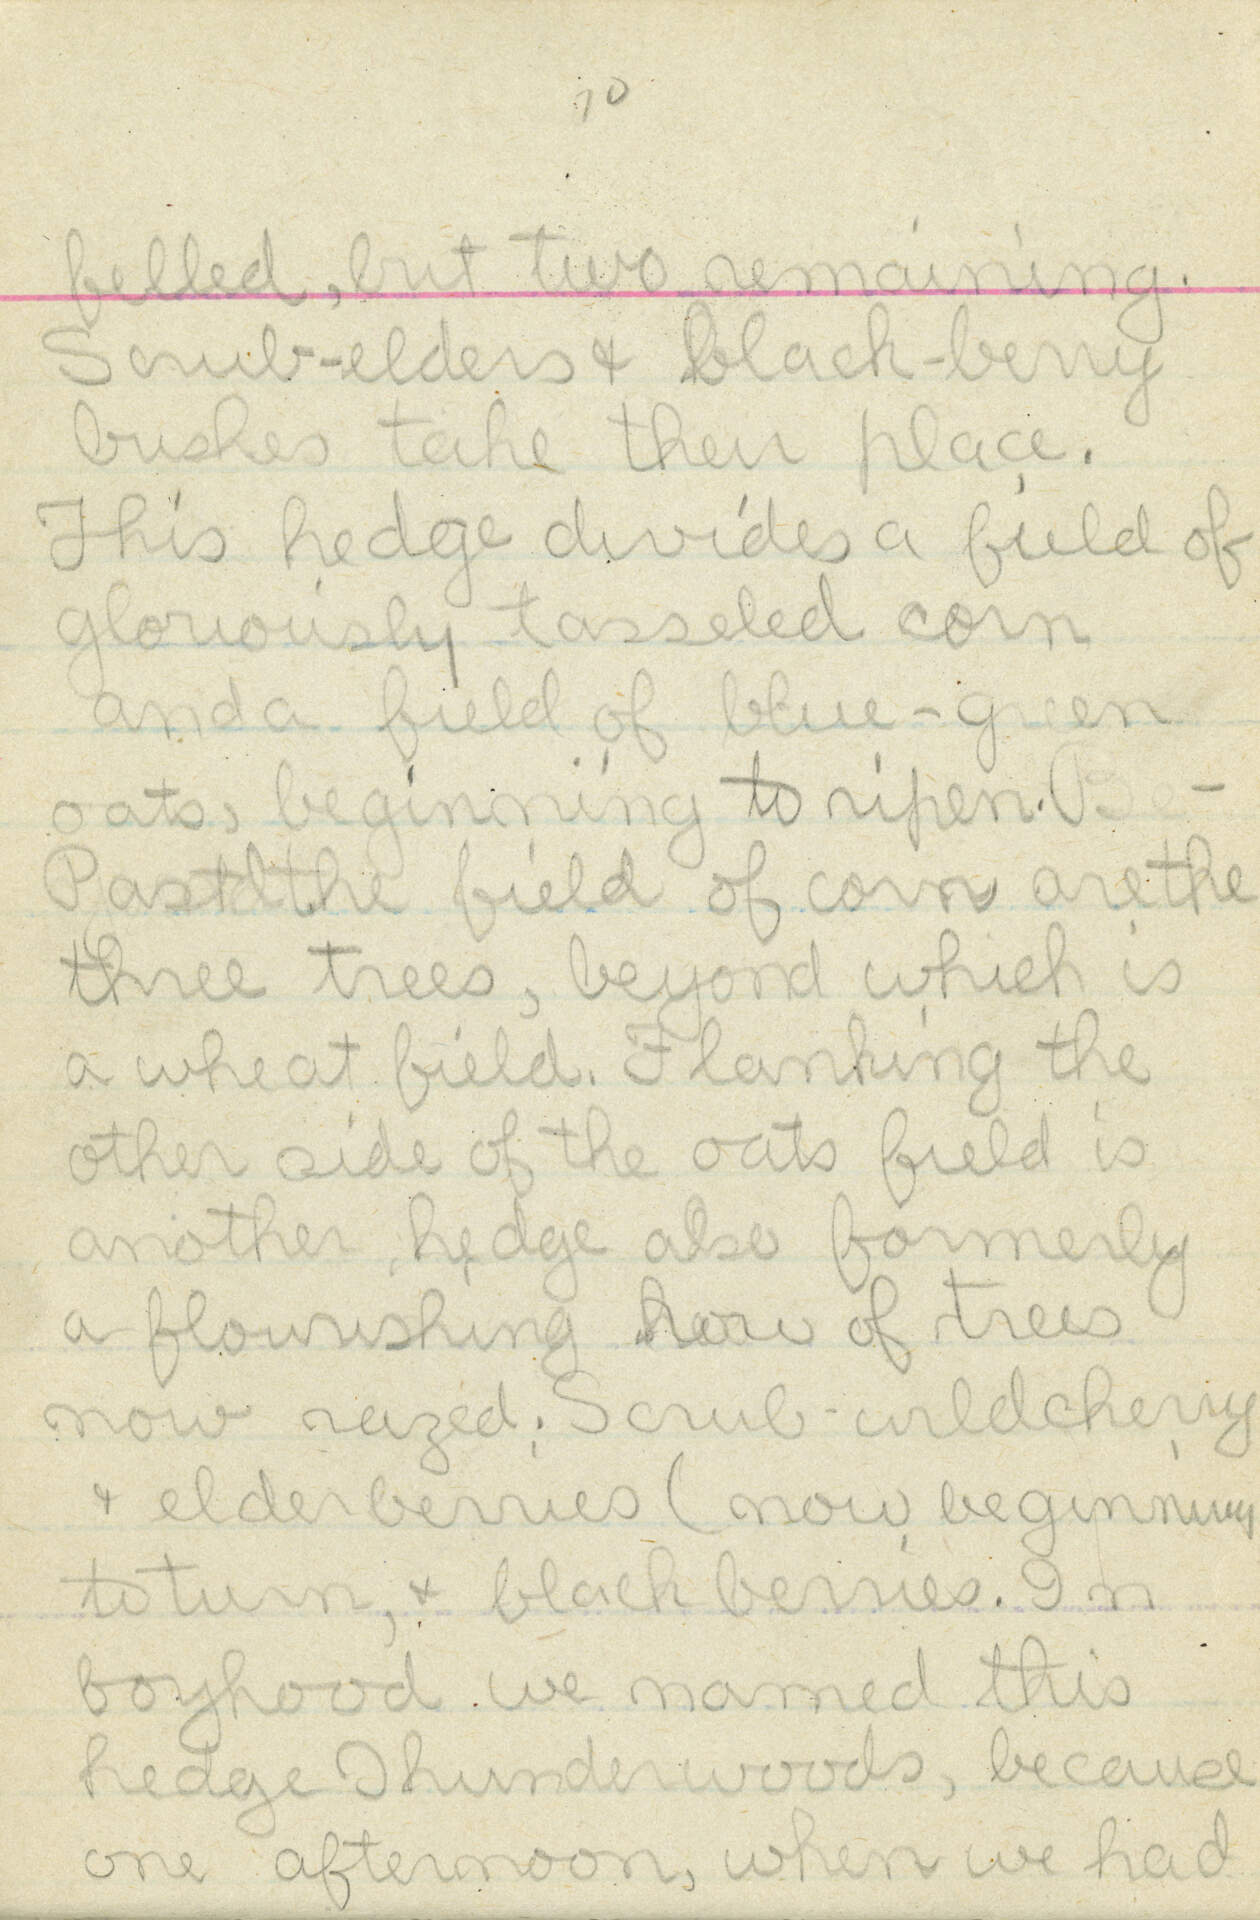 10
felled, but two remaining.
Scrub-elders & black-berry
bushes take their place.
This hedge divides a field of
gloriously tasseled corn
and a field of blue-green
oats, beginning to ripen. Be-
Past the field of corn are the
three trees, beyond which is
a wheat field. Flanking the
other side of the oats field is
another hedge also formerly
a flourishing row of trees
now razed; Scrub-wildcherry
& elderberries (now beginning
to turn, & black berries. In
boyhood we named this
hedge Thunderwoods, because
one afternoon, when we had